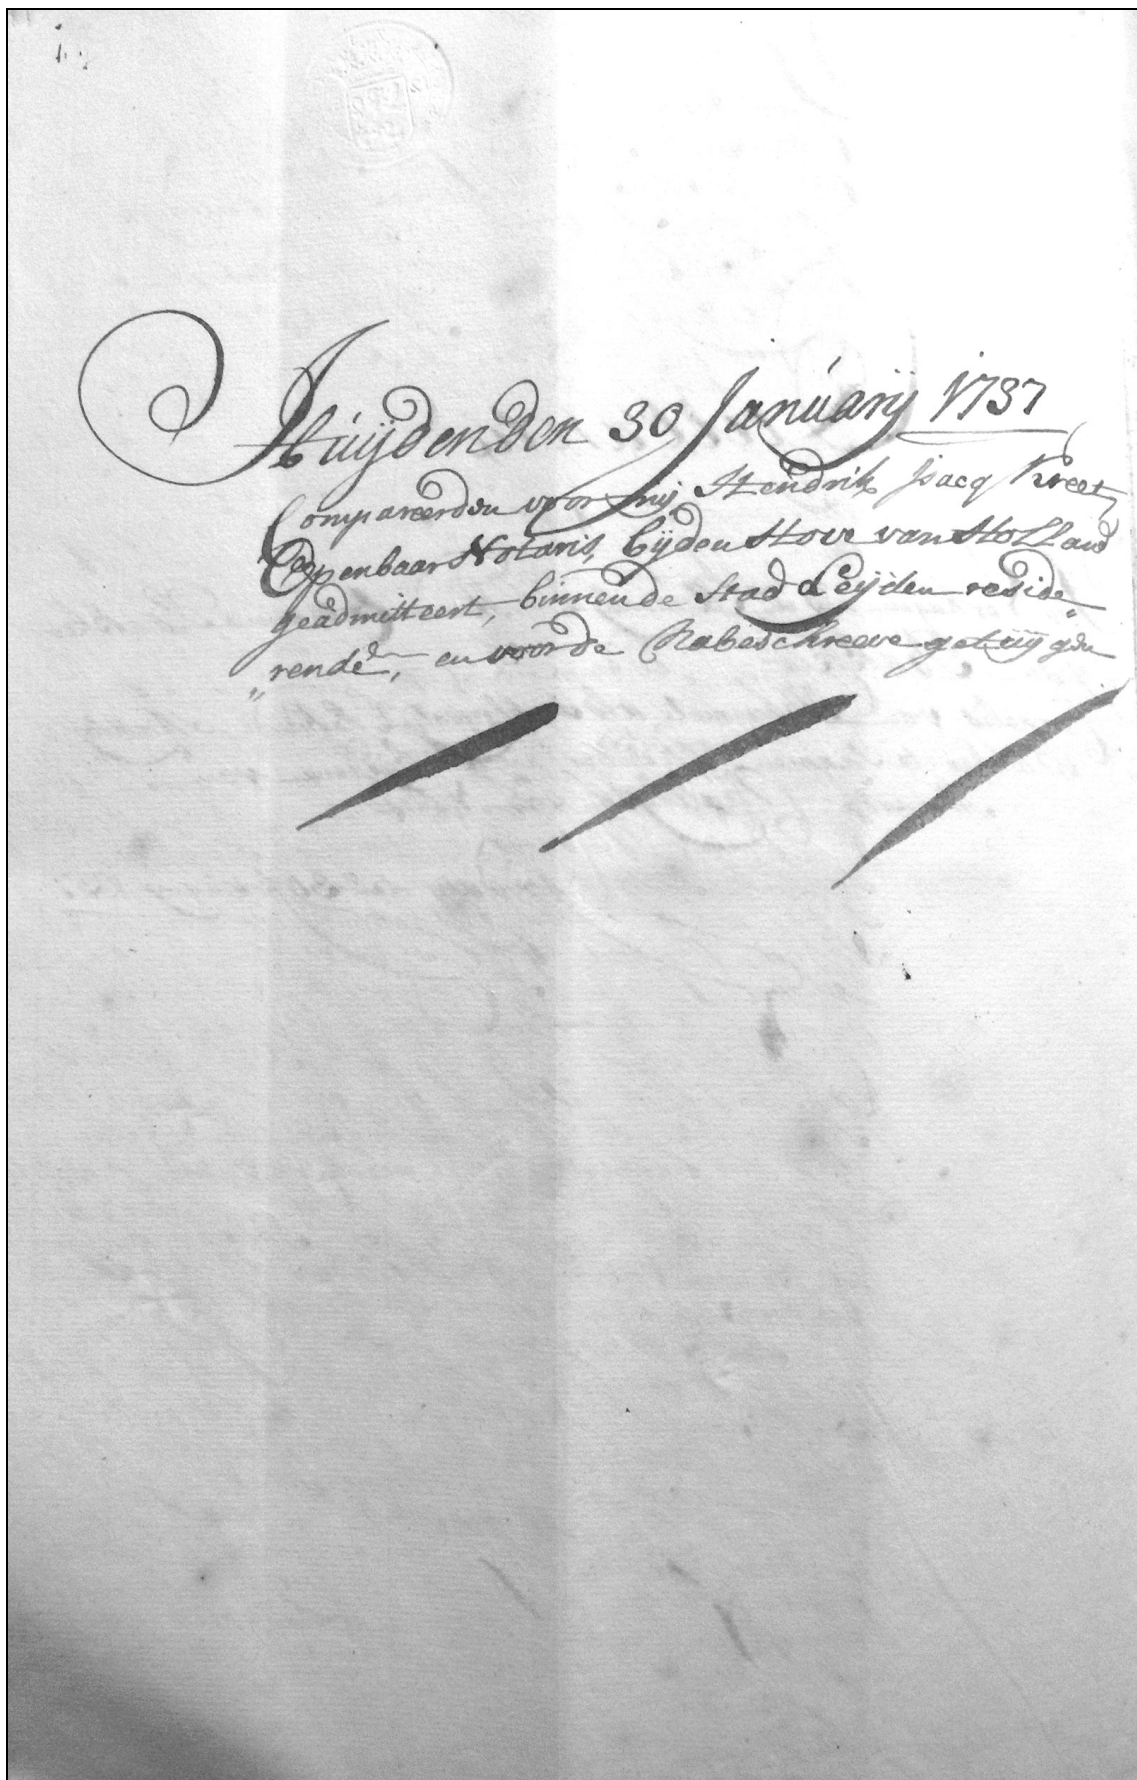 Huijden den 30 Januarij 1737
Compareerden voor mij, Hendrik Isacq Kreet
Openbaar Notaris, bijden Hove van Holland
geadmitteert, binnen de Stad Leijden reside„
„rende, en voor de Nabeschreeve getuijgen